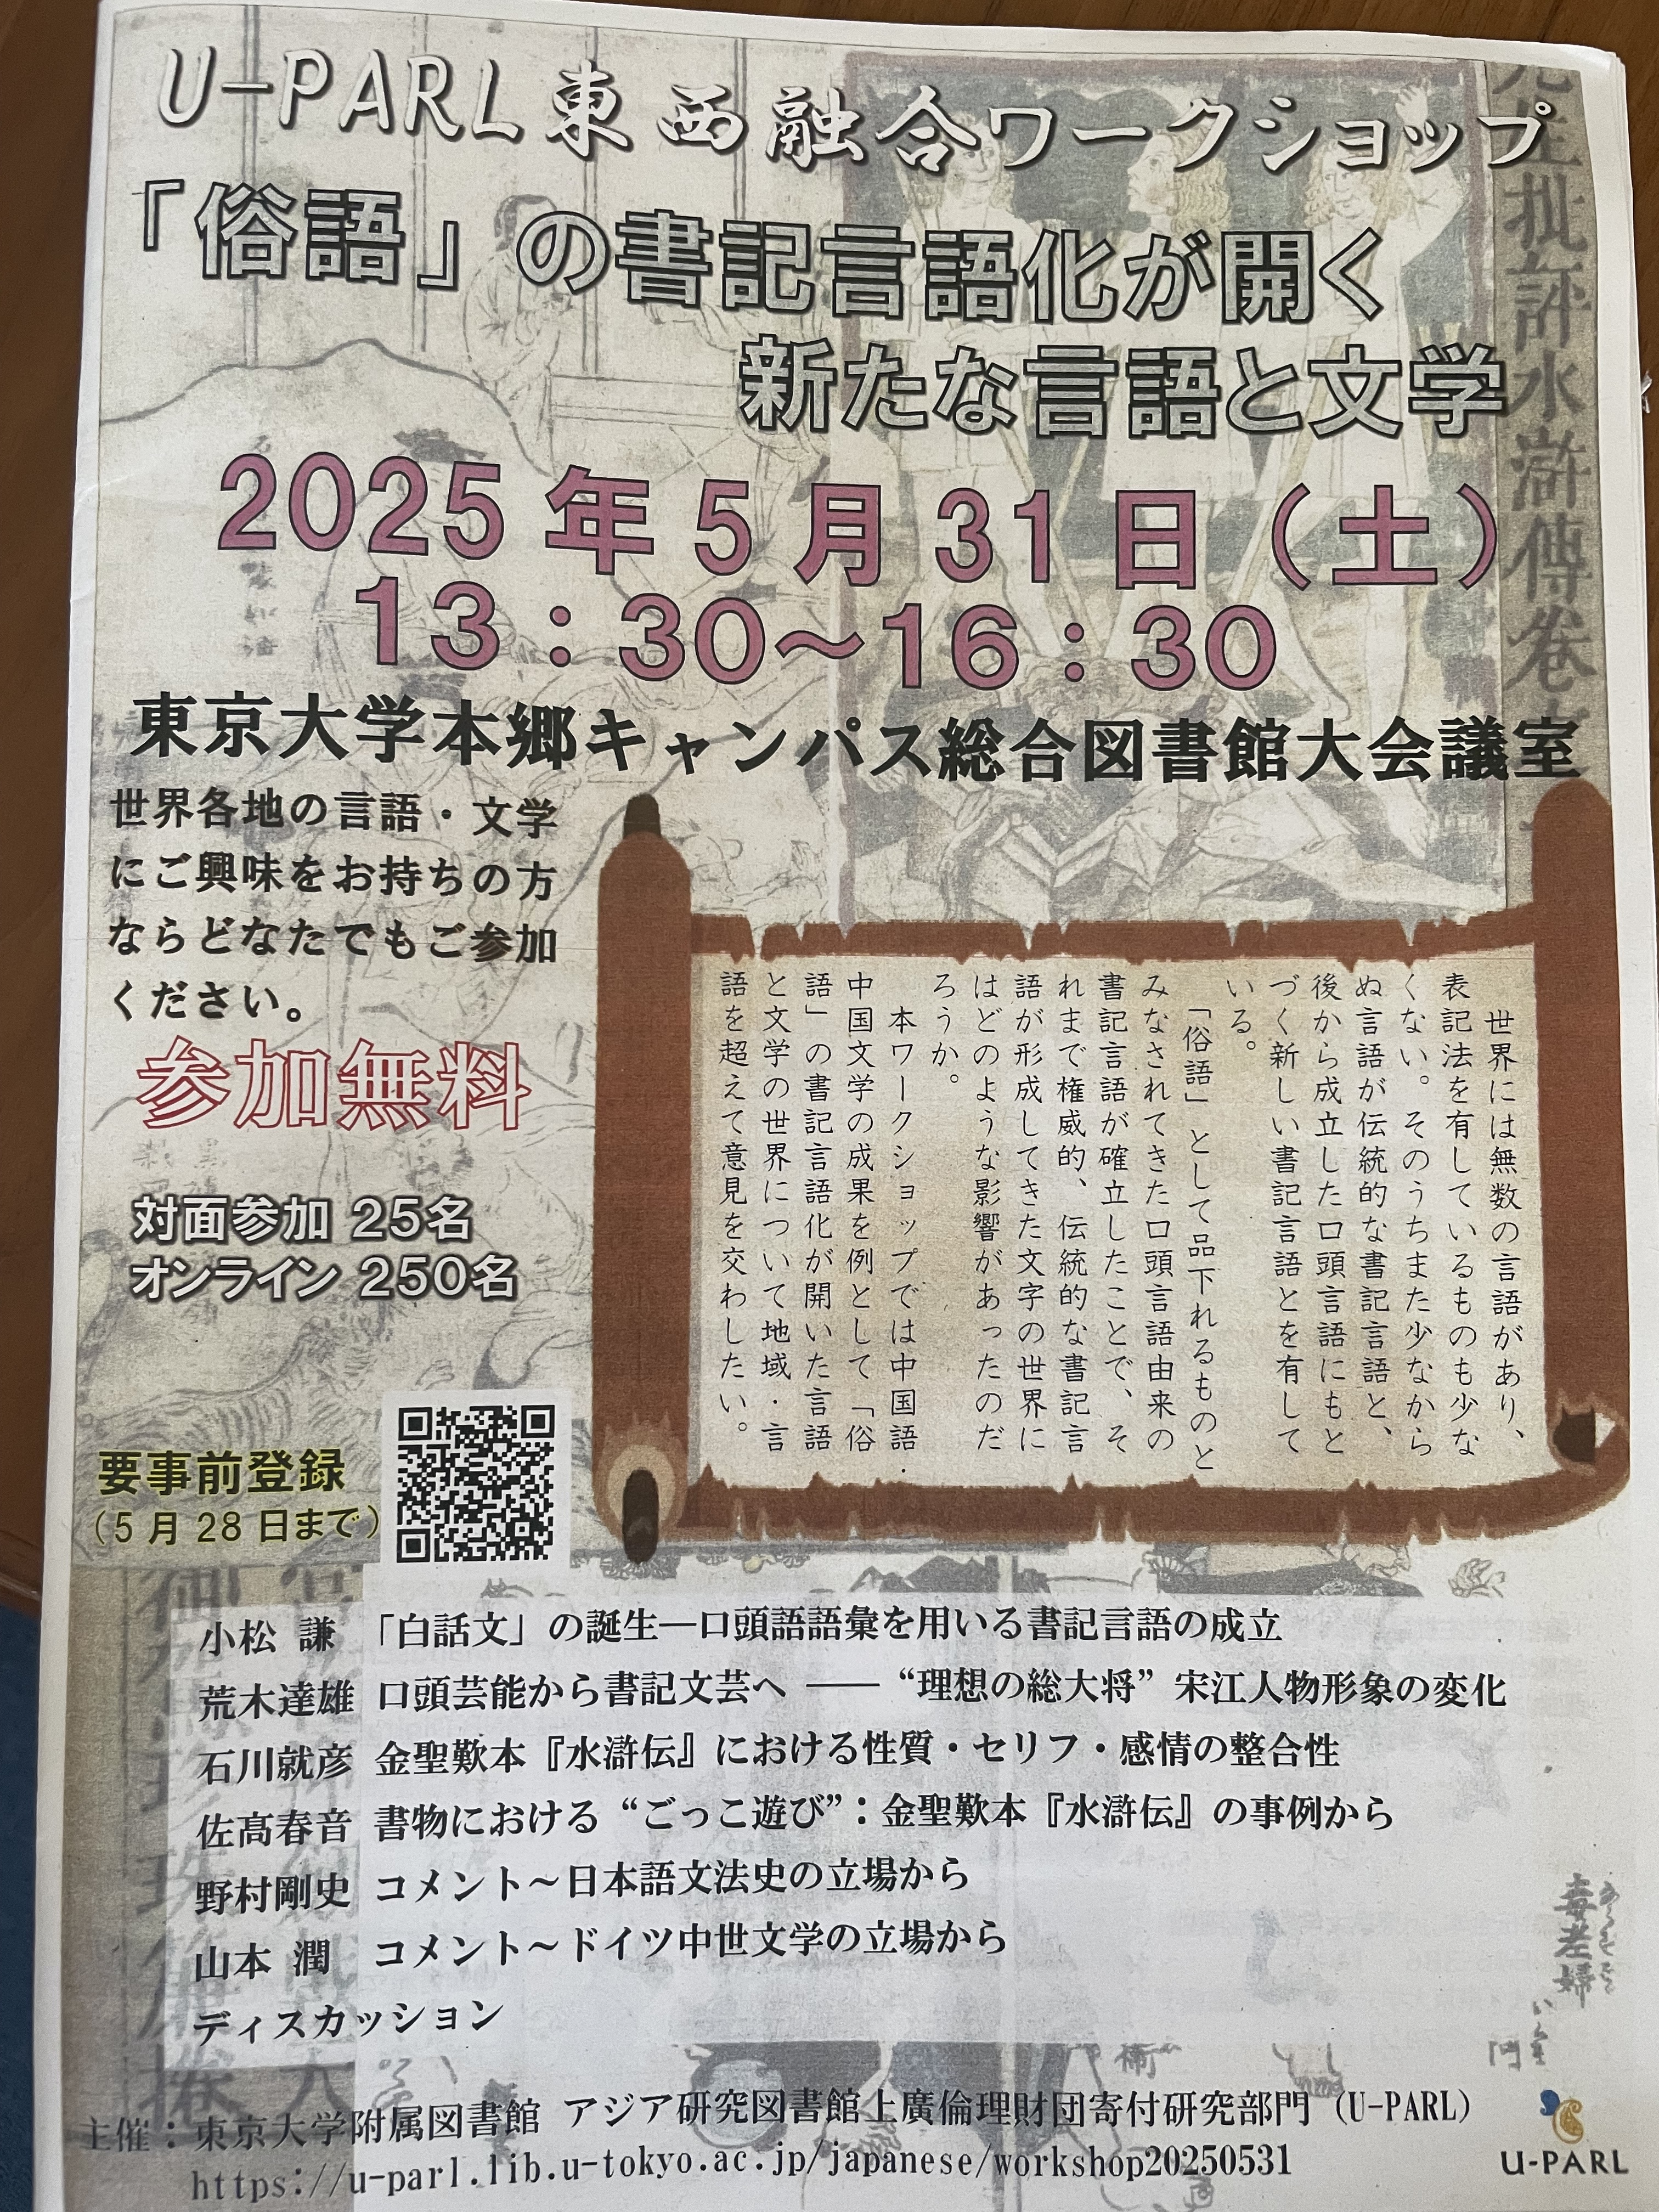 U-PARL東西融合ワークショップ
「俗語」の書記言語化が開く
新たな言語と文学
2025年5月31日(土)
13:30~16:30
東京大学本郷キャンパス総合図書館大会議室
世界各地の言語・文学
にご興味をお持ちの方
ならどなたでもご参加
ください。
参加無料
対面参加 25名
オンライン 250名
要事前登録
(5月28日まで)
世界には無数の言語があり、
表記法を有しているものも少な
くない。そのうちまた少なから
ぬ言語が伝統的な書記言語と、
後から成立した口頭言語にもと
づく新しい書記言語とを有して
いる。
「俗語」として品下れるものと
みなされてきた口頭言語由来の
書記言語が確立したことで、そ
れまで権威的、伝統的な書記言
語が形成してきた文字の世界に
はどのような影響があったのだ
ろうか。
本ワークショップでは中国語・
中国文学の成果を例として「俗
語」の書記言語化が開いた言語
と文学の世界について地域・言
語を超えて意見を交わしたい。
小松 謙 「白話文」の誕生―口頭語語彙を用いる書記言語の成立
荒木達雄 口頭芸能から書記文芸へ ――“理想の総大将”宋江人物形象の変化
石川就彦 金聖歎本『水滸伝』における性質・セリフ・感情の整合性
佐髙春音 書物における“ごっこ遊び”:金聖歎本『水滸伝』の事例から
野村剛史 コメント~日本語文法史の立場から
山本 潤 コメント~ドイツ中世文学の立場から
ディスカッション
主催:東京大学附属図書館 アジア研究図書館上廣倫理財団寄付研究部門(U-PARL)
https://u-parl.lib.u-tokyo.ac.jp/japanese/workshop20250531
U-PARL
先生批評水滸傳卷
毒差婦